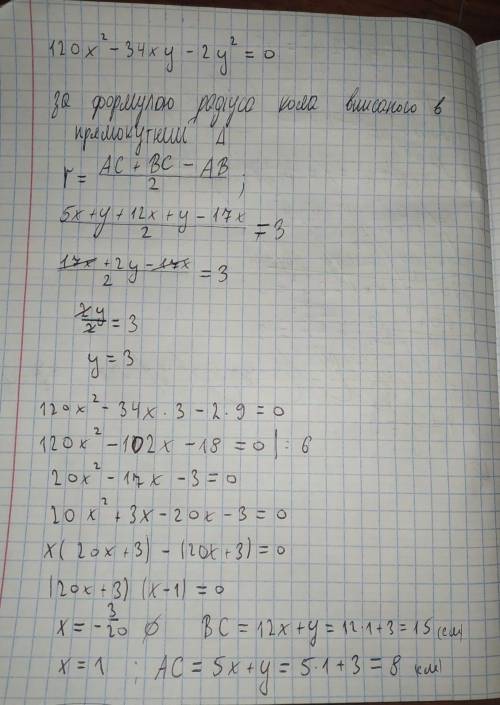 120x² - 34xy - 2y² = 0
за формулою радіуса кола вписаного в
прямокутний Δ
r = (AC + BC - AB)/2 ;
(5x+y+12x+y-17x)/2 = 3
(17x+2y-17x)/2 = 3
2y/2 = 3
y = 3
120x² - 34x · 3 - 2 · 9 = 0
120x² - 102x - 18 = 0 | : 6
20x² - 17x - 3 = 0
20x² + 3x - 20x - 3 = 0
x(20x+3) - (20x+3) = 0
(20x+3) (x-1) = 0
x = -3/20 ∅ BC = 12x+y = 12·1+3 = 15 (см)
x = 1 ; AC = 5x+y = 5·1+3 = 8 (см)